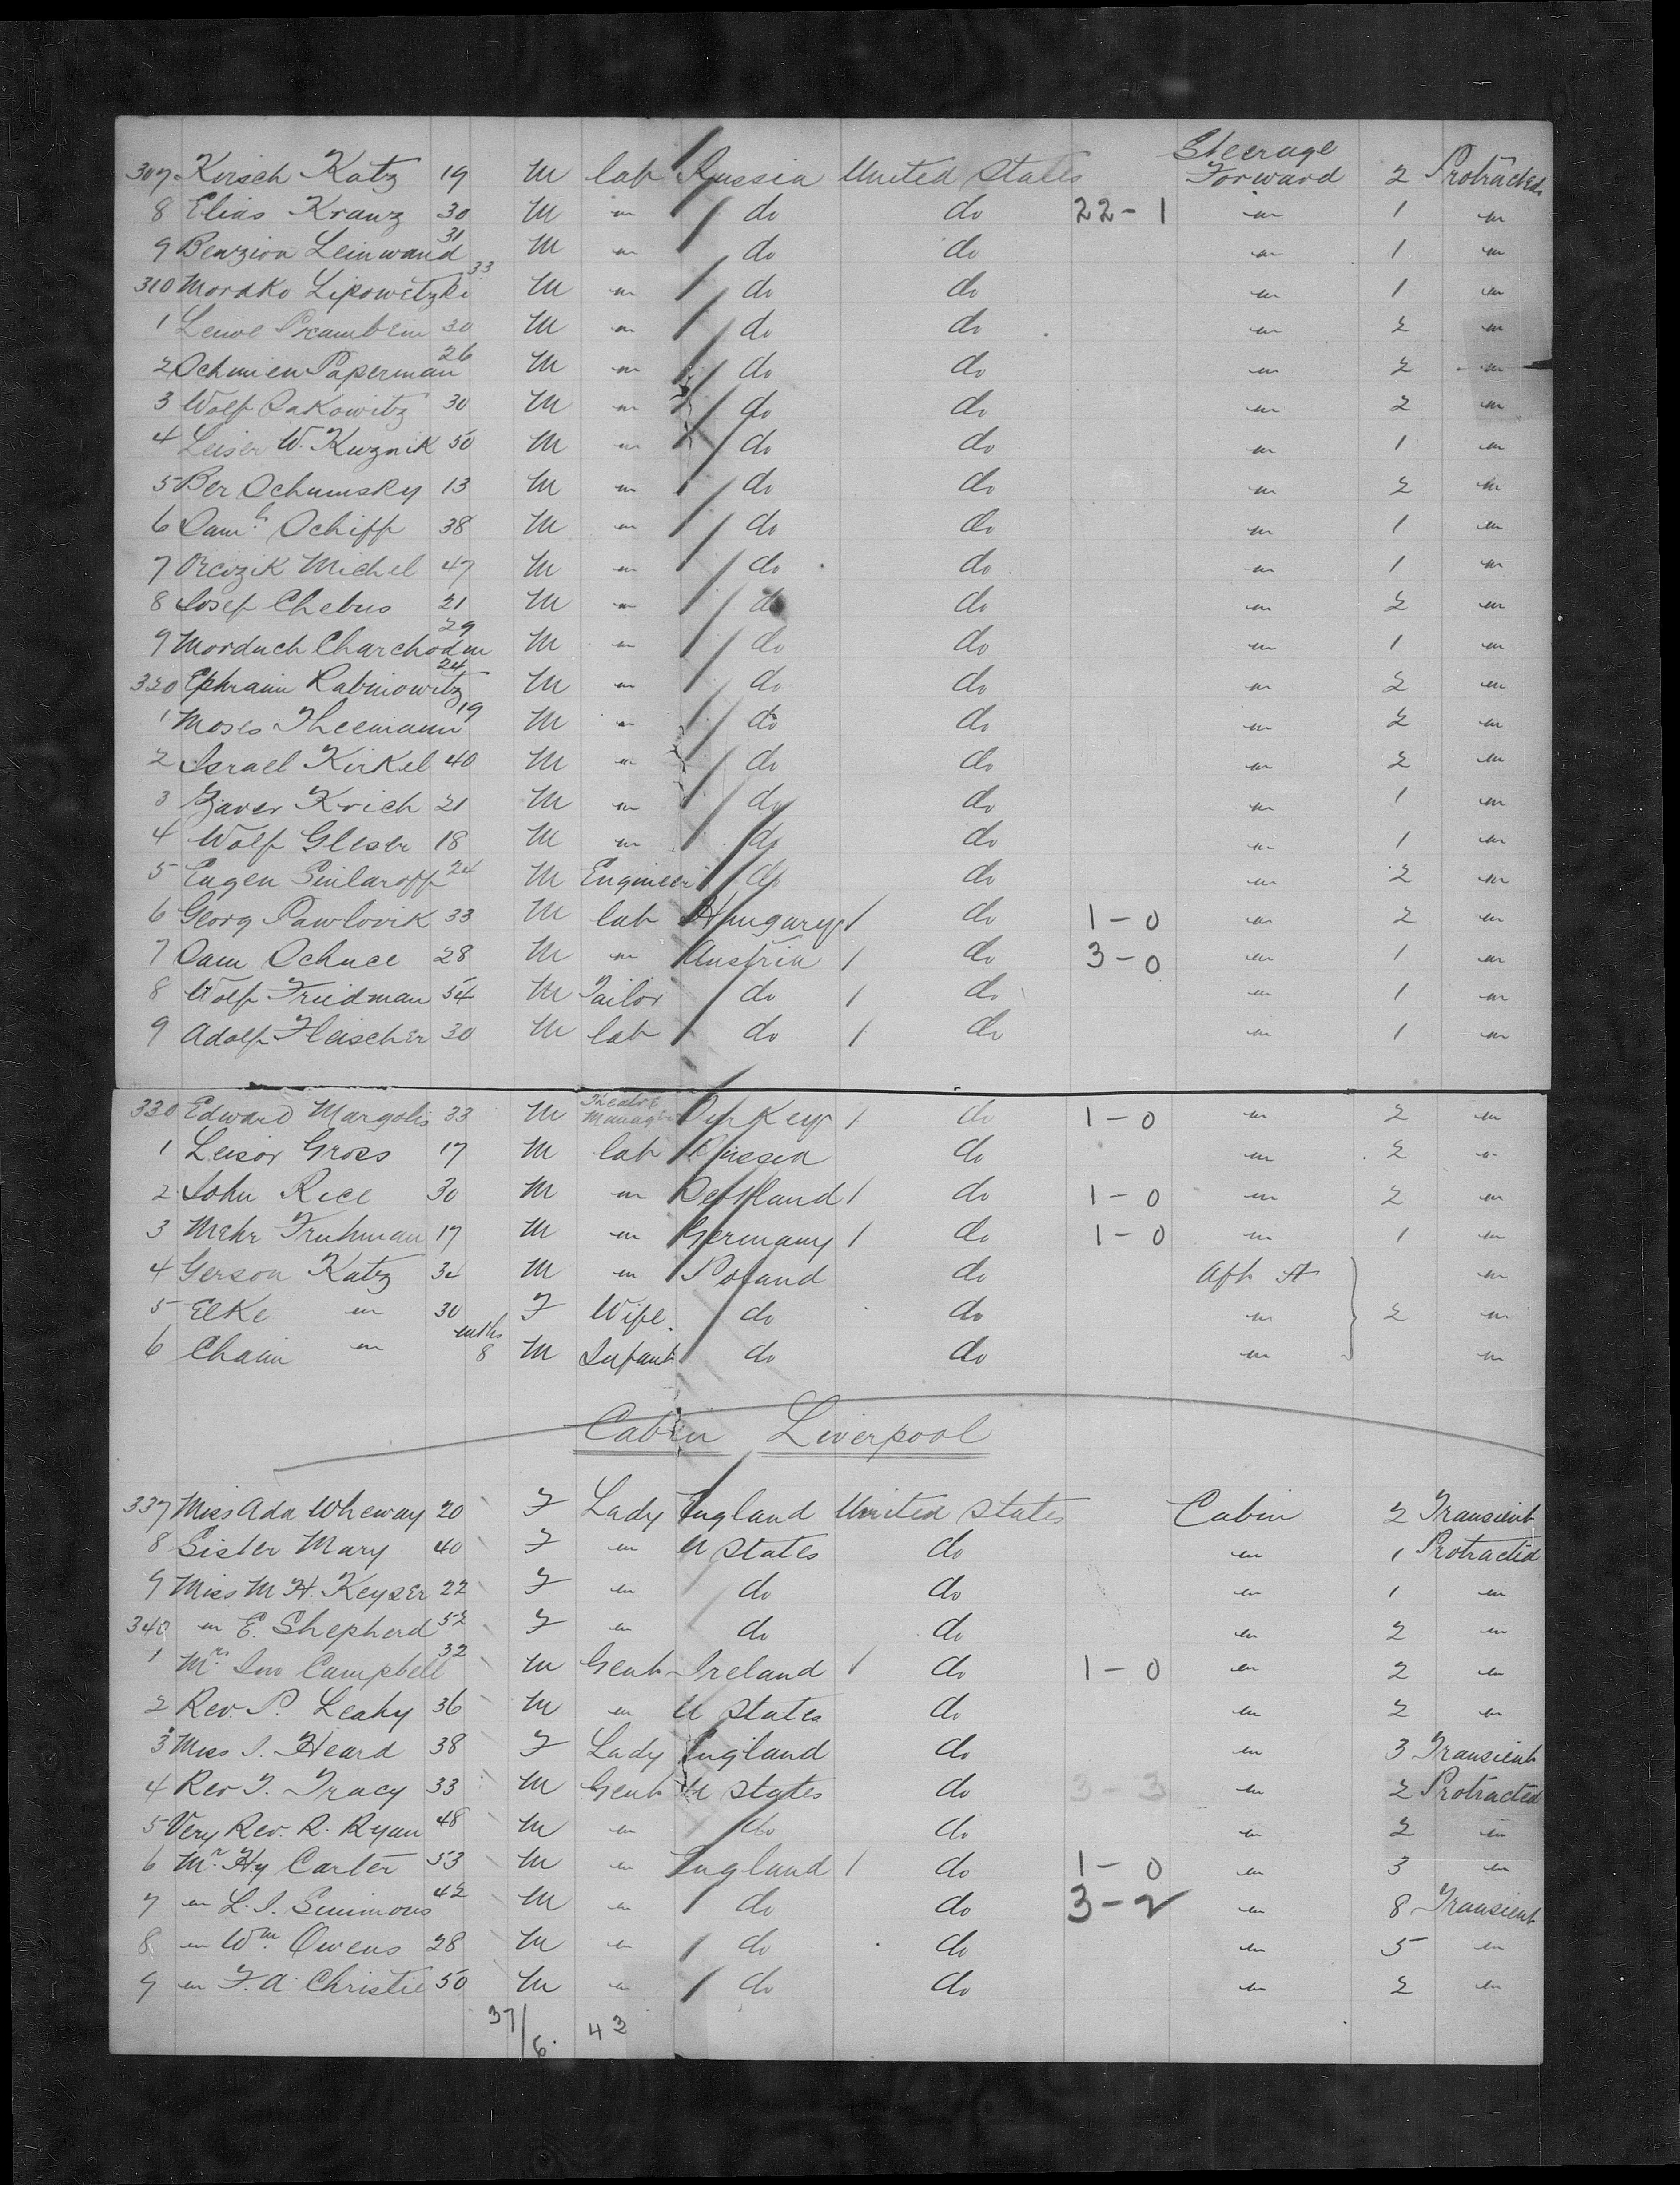 307 Kirsch Katz 19 M lab Russia United States Steerage Forward 2 Protracted
8 Elias Kranz 30 M " do do 22-1 " 1 "
9 Benzion Leinwand 31 M " do do " 1 "
310 Mordko Lipowetzki 33 M " do do " 1 "
1 30 M " do do " 2 "
2 Paperman 26 M " do do " 2 "
3 Wolf Sakowitz 30 M " do do " 2 "
4 Leiser W. Kuznik 50 M " do do " 1 "
5 Ber Schumsky 13 M " do do " 2 "
6 Saml Schiff 38 M " do do " 1 "
7 Michel 47 M " do do " 1 "
8 Josef Chebus 21 M " do do " 2 "
9 Morduch Charchodin 29 M " do do " 1 "
320 Ephraim Rabinowitz 24 M " do do " 2 "
1 Moses 19 M " do do " 2 "
2 Israel Kirkel 40 M " do do " 2 "
3 Krich 21 M " do do " 1 "
4 Wolf Gleser 18 M " do do " 1 "
5 Eugen 24 M Engineer do do " 2 "
6 Georg Pawlovik 33 M lab Hungary 1 do 1-0 " 2 "
7 Sam 28 M " Austria 1 do 3-0 " 1 "
8 Wolf Friedman 54 M Tailor do 1 do " 1 "
9 Adolf Fleischer 30 M lab do 1 do " 1 "
330 Edward Margolis 33 M Theatre Manager Turkey 1 do 1-0 " 2 "
1 Leisor Gross 17 M lab Russia do " 2 "
2 John Rice 30 M " 1 do 1-0 " 2 "
3 Mehr Fruhman 17 M " Germany 1 do 1-0 " 1 "
4 Gerson Katz M " Poland do Aft St "
5 Elke " 30 F Wife do do " 2 "
6 Chaim " mths 8 M Infant do do " "
Cabin Liverpool
337 Miss Ada Wheway 20 F Lady England United States Cabin 2 Transient
8 Sister Mary 40 F " U States do " 1 Protracted
9 Miss M H. Keyser 22 F " do do " 1 "
340 " E. Shepherd 52 F " do do " 2 "
1 Mr Jno Campbell 32 M Gent Ireland 1 do 1-0 " 2 "
2 Rev. P. Leahy 36 M " U States do " 2 "
3 Miss I. Heard 38 F Lady England do " 3 Transient
4 Rev T. Tracy 33 M Gent U States do 3-3 " 2 Protracted
5 Very Rev. R. Ryan 48 M " do do " 2 "
6 Mr. Hy Carter 53 M " England 1 do 1-0 " 3 "
7 " L. I. Simmons 42 M " do do 3-2 " 8 Transient
8 " Wm Owens 28 M " do do " 5 "
9 " F. A. Christie 50 M " do do " 2 "
37/6. 43